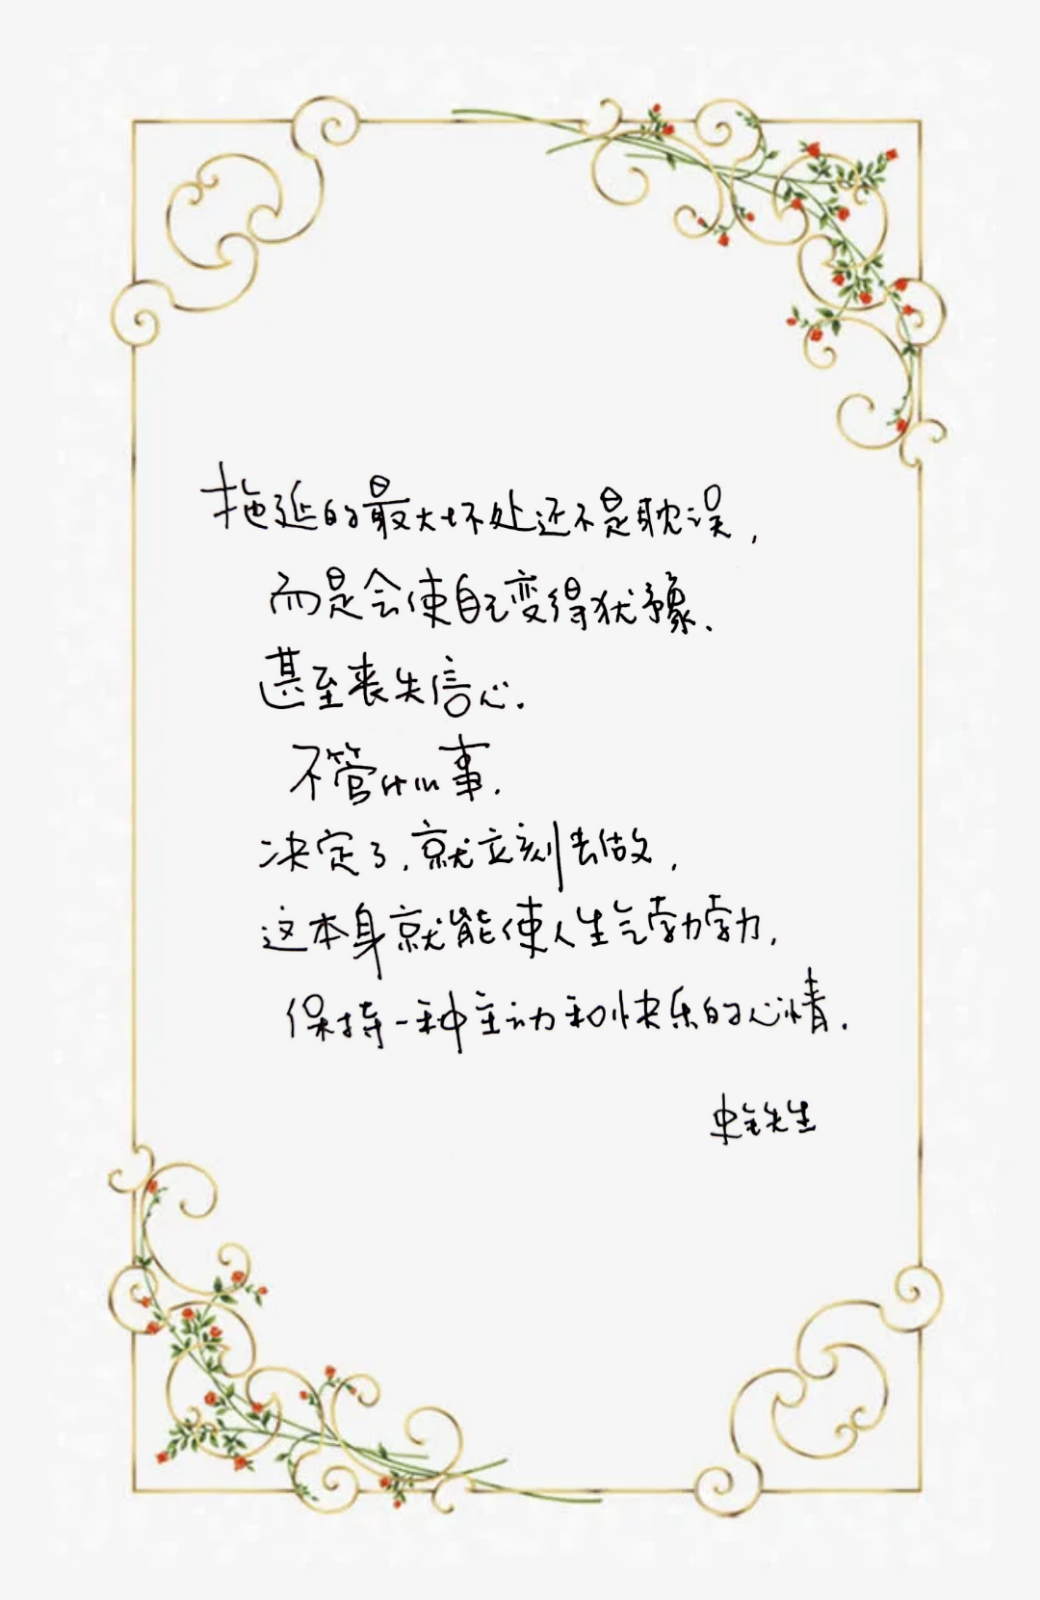 拖延的最大坏处还不是耽误，
而是会使自己变得犹豫、
甚至丧失信心.
不管什么事.
决定了.就立刻去做，
这本身就能使人生气勃勃，
保持一种主动和快乐的心情.
史铁生